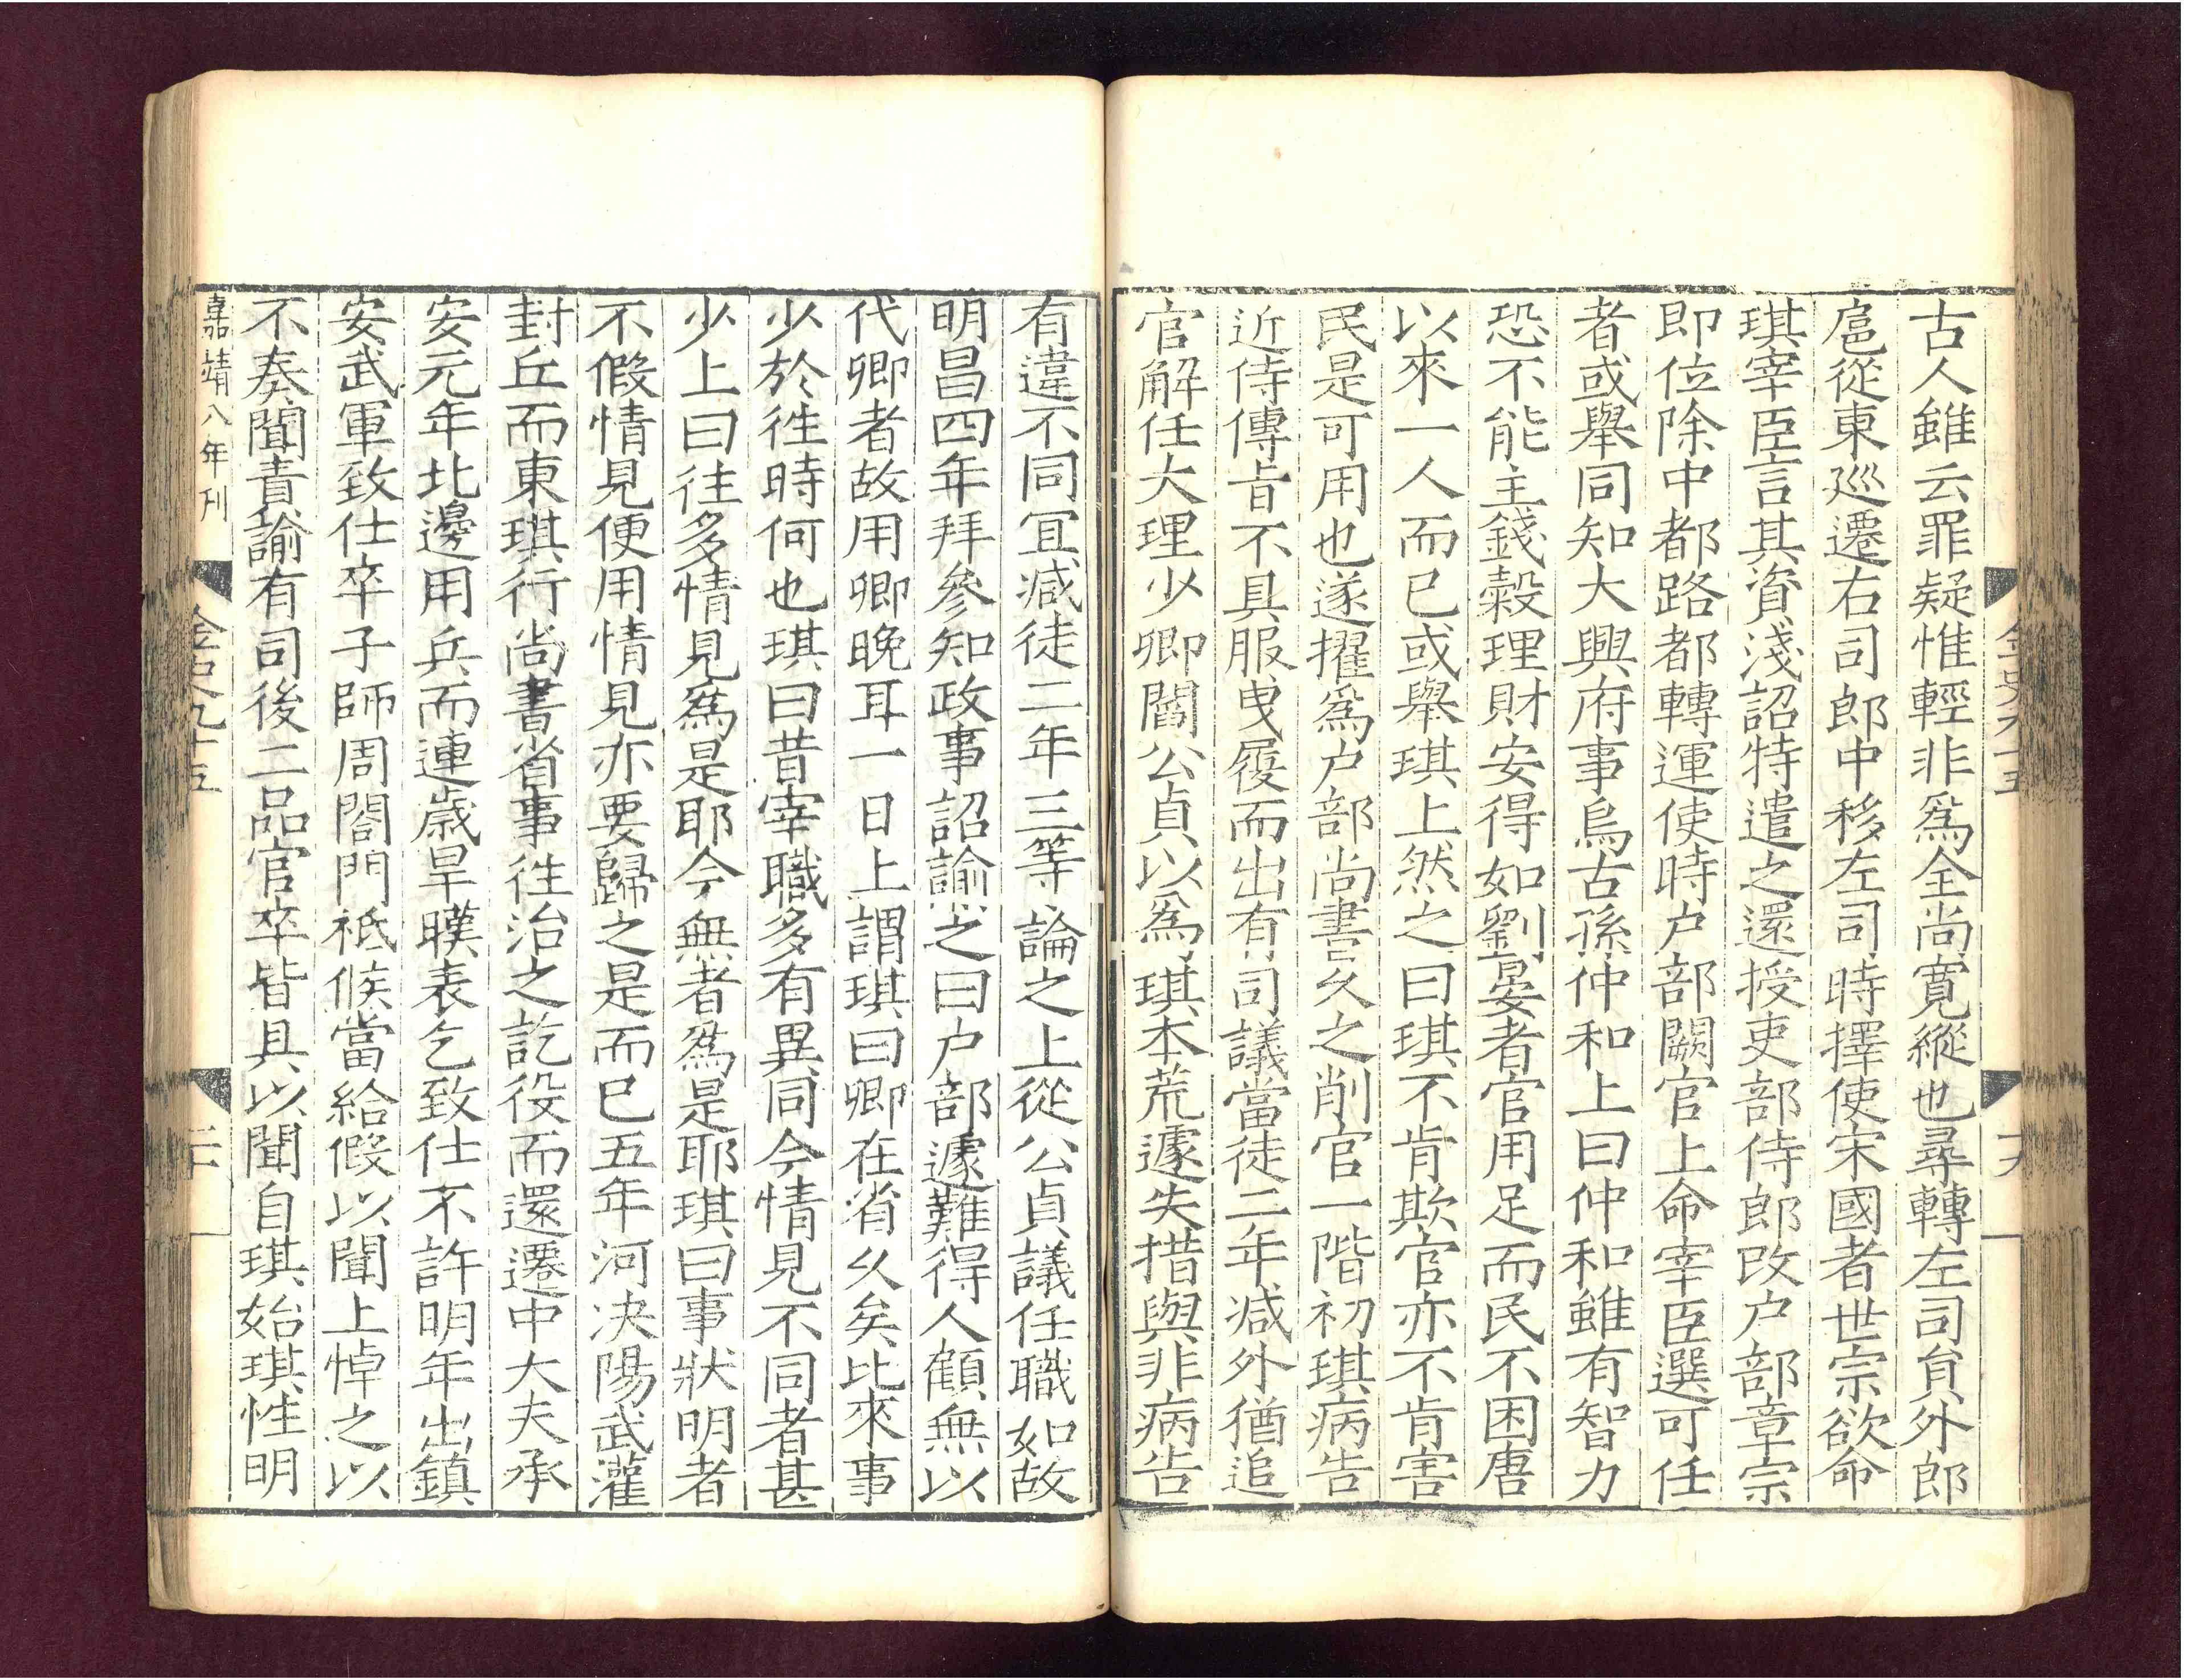 古人雖云罪疑惟輕非爲全尚寬縱也尋轉左司貟外郎
扈從東巡遷右司郎中移左司時擇使宋國者世宗欲命
琪宰臣言其資淺詔特遣之還授吏部侍郎改户部章宗
即位除中都路都轉運使時户部闕官上命宰臣選可任
者或舉同知大興府事烏古孫仲和上曰仲和雖有智力
恐不能主錢穀理財安得如劉晏者官用足而民不困唐
以來一人而已或舉琪上然之曰琪不肯欺官亦不肯害
民是可用也遂擢爲户部尚書久之削官一階初琪病告
近侍傳旨不具服曵履而出有司議當徒二年减外猶追
官解任大理少卿閻公貞以爲琪本荒遽失措與非病告
金史九十五
十九
有違不同冝减徒二年三等論之上從公貞議任職如故
明昌四年拜參知政事詔諭之曰户部遽難得人顧無以
代卿者故用卿晚耳一日上謂琪曰卿在省久矣比來事
少於徃時何也琪曰昔宰職多有異同今情見不同者甚
少上曰往多情見爲是耶今無者爲是耶琪曰事狀明者
不假情見便用情見亦要歸之是而已五年河决陽武灌
封丘而東琪行尚書省事徃治之訖役而還遷中大夫承
安元年北邊用兵而連歲旱暵表乞致仕不許明年出鎮
安武軍致仕卒子師周閤門祗候當給假以聞上悼之以
不奏聞責諭有司後二品官卒皆具以聞自琪始琪性明
嘉靖八年刊
金史九十五
二十